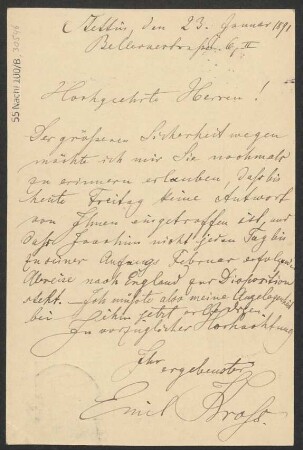 Stettin den 23. Januar 1891
Bellevuestraße 67 II
Hochgeehrte Herren!
Der größeren Sicherheit wegen
möchte ich mir Sie nochmals
zu erinnern erlauben, daß bis
heute Freitag keine Antwort
von Ihnen eingetroffen ist, und
daß Joachim nicht jeden Tag bis
zu seiner Anfangs Februar erfolgenden
Abreise nach England zur Disposition
steht. Ich müßte also meine Angelegenheit
bei ihm jetzt
In vorzüglicher Hochachtung
Ihr
ergebenster
Emil Kroß.
55 Nachl 100/B